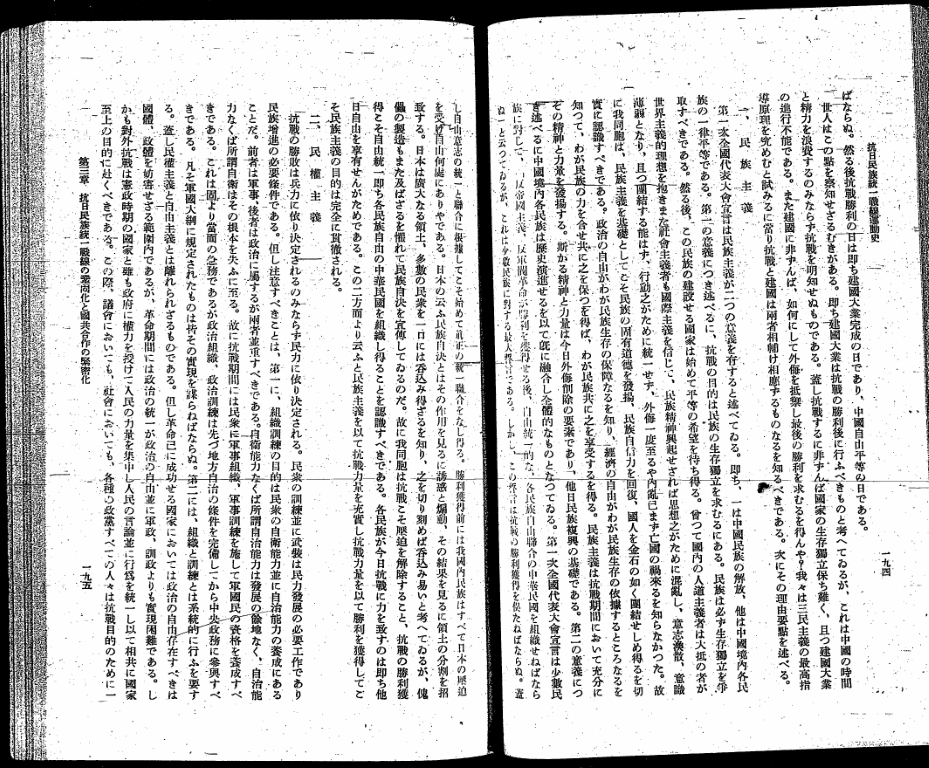 抗日民族統一戰線運動史
一九四
ばならぬ。然る後抗戰勝利の日は即ち建國大業完成の日であり、中國自由平等の日である。
世人はこの點を察知せざるむきがある。即ち建國大業は抗戰の勝利後に行ふべきものと考へてゐるが、これは中國の時間
と精力を浪費するのみならず抗戰を明知せぬものである。蓋し抗戰するに非ずんば國家の生存獨立保ち難く、且つ建國大業
の進行不能である。また建國に非ずんば、如何にして外侮を抵禦し最後の勝利を求むるを得んや?我々は三民主義の最高指
導原理を究めむと試みるに當り抗戰と建國は兩者相輔け相應ずるものなるを知るべきである。次にその理由要點を述べる。
一、民族主義
第一次全國代表大會宣言は民族主義が二つの意義を有すると述べてゐる。即ち、一は中國民族の解放、他は中國境內各民
族の一律平等である。第一の意義につき述べるに、抗戰の目的は民族の生存獨立を求むるにある。民族は必ず生存獨立を爭
取すべきである。然る後、この民族の建設せる國家は始めて平等の希望を持ち得る。曾つて國內の人道主義者は大抵の者が
世界主義的理想を抱きまた社會主義者も國際主義を信じ、民族精神興起せざれば思想之がために混亂し、意志渙散、意識
薄弱となり、且つ團結する能はず、行動之がために統一せず、外侮一度至るや內亂已まず亡國の禍來るを知らなかつた。故
に我同胞は、民族主義を基礎としてこそ民族の固有道德を發揚、民族自信力を回復、國人を金石の如く團結せしめ得るを切
實に認識すべきである。政治の自由がわが民族生存の保障なるを知り、經濟の自由がわが民族生存の依據するところなるを
知つて、わが民族の力を合せ共に之を保つを得ば、わが民族共に之を享受するを得る。民族主義は抗戰期間において充分に
その精神と力量を發揚する。斯かる精神と力量は今日外侮剷除の要素であり、他日民族復興の基礎である。第二の意義につ
き述べるに中國境內各民族は歷史演進せるを以て既に融合し全體的なものとなつてゐる。第一次全國代表大會宣言は少數民
族に對して、「反帝國主義、反軍閥革命が勝利を獲得せる後、自由統一的な、各民族自由聯合の中華民國を組織せねばなら
ぬ」と云つてゐるが、これは少數民族に對する最大誓言である。しかし、この誓言は抗戰の勝利獲得を俟たねばならぬ。蓋
し自由意志の統一と聯合に根據してこそ始めて眞正の統一聯合をなし得る。勝利獲得前には我國內民族はすべて日本の壓迫
を受け自由何處にありやである。日本の云ふ民族自決とはその作用を見るに誘惑と煽動、その結果を見るに領土の分割を招
致する。日本は廣大なる領土、多數の民衆を一口には呑込み得ざるを知り、之を切り刻めば呑込み易いと考へてゐるが、傀
儡の製造もまた及ばざるを懼れて民族自決を宣傳してゐるのだ。故に我同胞は抗戰こそ壓迫を解除すること、抗戰の勝利獲
得こそ自由統一即ち各民族自由の中華民國を組織し得ることを認識すべきである。各民族が今日抗戰に力を致すのは即ち他
日自由を享有せんがためである。この二方面より云ふと民族主義を以て抗戰力量を充實し抗戰力量を以て勝利を獲得してこ
そ民族主義の目的は完全に貫徹される。
二、民權主義
抗戰の勝敗は兵力に依り決定されるのみならず民力に依り決定される。民衆の訓練並に武裝は民力發展の必要工作であり
民族增進の必要條件である。但し注意すべきことは、第一に、組織訓練の目的は民衆の自衞能力並に自治能力の養成にある
ことだ。前者は軍事、後者は政治に屬するが兩者並重すべきである。自衞能力なくば所謂自治能力は發展の餘地なく、自治能
力なくば所謂自衞はその根本を失ふに至る。故に抗戰期間には民衆に軍事組織、軍事訓練を施して軍國民の資格を養成すべ
きである。これは固より當面の急務であるが政治組織、政治訓練は先づ地方自治の條件を完備してから中央政務に參與すべ
きである。凡そ軍國大綱に規定されたものは皆その實現を謀らねばならぬ。第二には、組織と訓練とは系統的に行ふを要す
る。蓋し民權主義と自由主義とは離れられざるものである。但し革命已に成功せる國家においては政治の自由存在すべきは
國體、政體を妨害せざる範圍內であるが、革命期間には政治の統一が政治の自由並に軍政、訓政よりも實現困難である。し
かも對外抗戰は憲政時期の國家と雖も政府に權力を授けて人民の力量を集中し人民の言論並に行爲を統一し以て相共に國家
至上の目的に赴くべきである。この際、議會においても、社會においても、各種の政黨すべての人々は抗戰目的のために一
第三章 抗日民族統一戰線の鞏固化と國共合作の緊密化
一九五